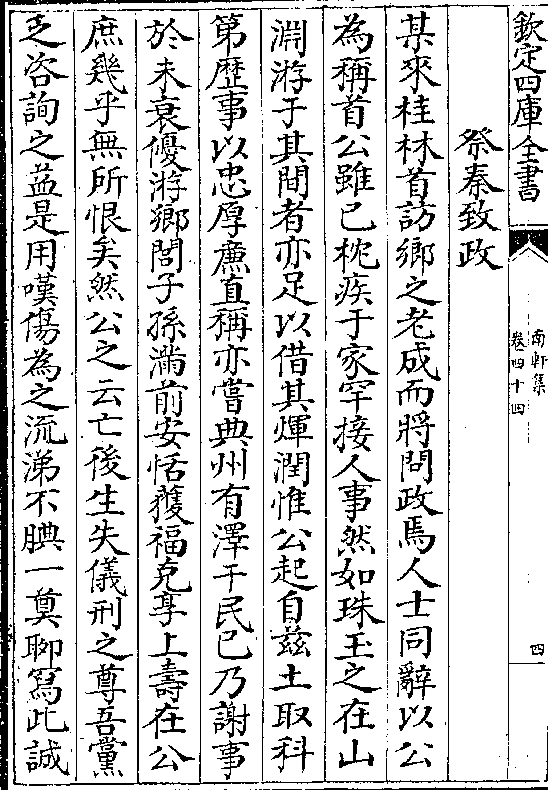 欽定四庫全書
南軒集
卷四十四
四
祭秦致政
某來桂林首訪鄉之老成而將問政焉人士同辭以公
為稱首公雖已枕疾于家罕接人事然如珠玉之在山
淵游于其間者亦足以借其煇潤惟公起自兹土取科
第歴事以忠厚亷直稱亦嘗典州有澤于民已乃謝事
於未衰優游鄉閭子孫滿前安恬獲福克享上壽在公
庶幾乎無所恨矣然公之云亡後生失儀刑之尊吾黨
乏咨詢之益是用嘆傷為之流涕不腆一奠聊寫此誠